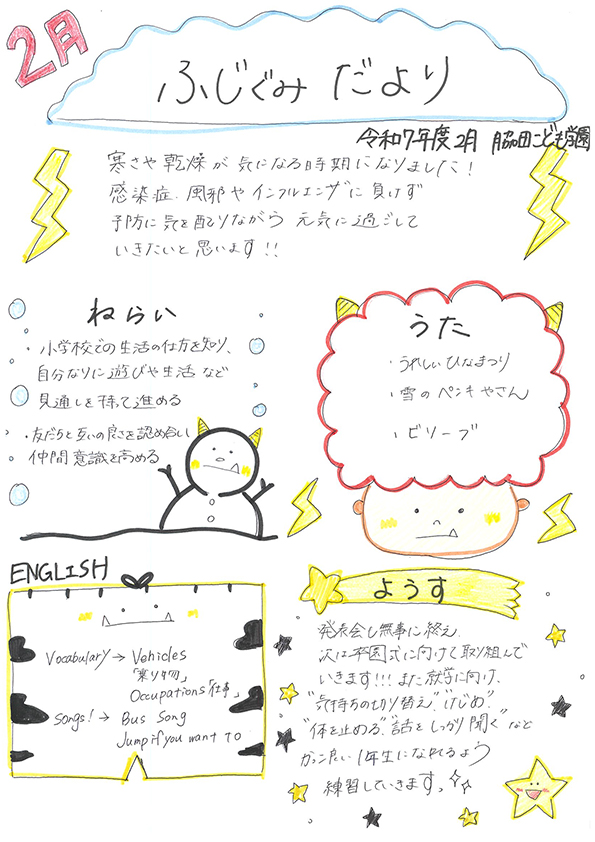 2月
ふじぐみ だより
令和7年度 2月 脇田こども学園
寒さや乾燥が気になる時期になりました!
感染症、風邪やインフルエンザに負けず
予防に気を配りながら 元気に過ごして
いきたいと思います!!
ねらい
・小学校での生活の仕方を知り、
自分なりに遊びや生活など
見通しを持って進める
・友だちと互いの良さを認め合い
仲間意識を高める
うた
・うれしいひなまつり
・雪のペンキやさん
・ビリーブ
ENGLISH
Vocabulary → Vehicles
「乗り物」
Occupations「仕事」
Songs! → Bus Song
Jump if you want to
ようす
発表会も無事に終え、
次は卒園式に向けて取り組んで
いきます!!! また就学に向け、
"気持ちの切り替え""けじめ"
"体を止める""話をしっかり聞く"など
かっこいい1年生になれるよう
練習していきます。